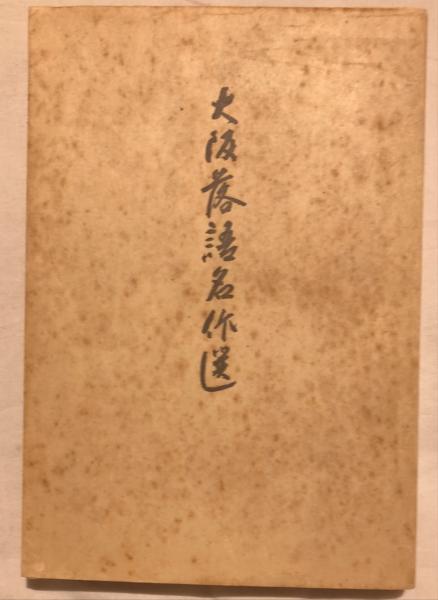 大阪落語名作選